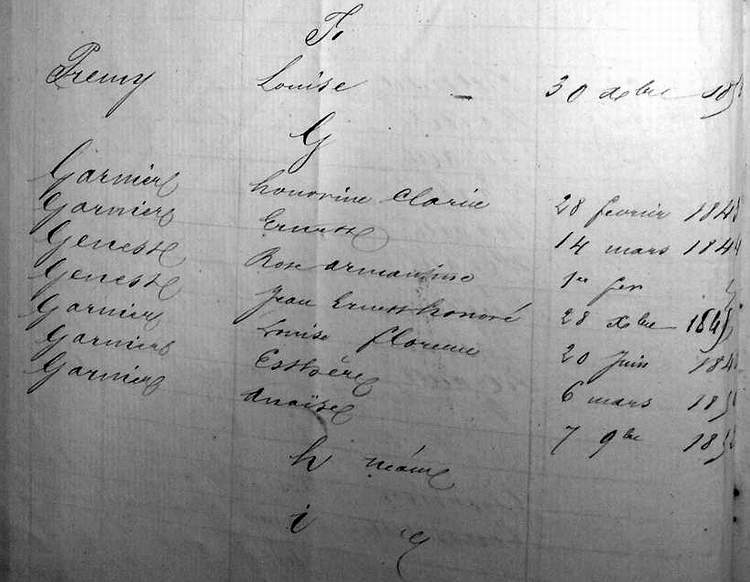 F
Fremy Louise 30 xbre
G
Garnier honorine Clarie 28 fevrier 184
Garnier Ernest 14 mars 184
Genest Rose armantine 1er fev
Genest Jean Ernest honoré 28 xbre 184
Garnier Louise florence 20 Juin 184
Garnier Esthère 6 mars 185
Garnier anaïse 7 9bre 185
h néant
i